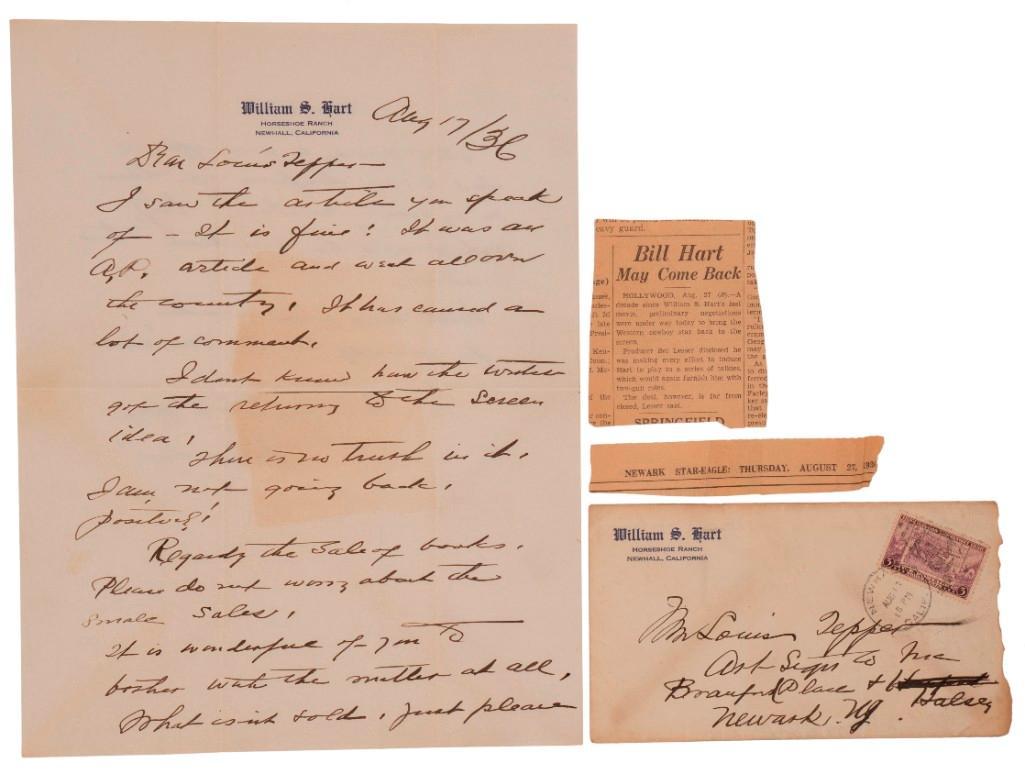 William S. Hart
HORSESHOE RANCH
NEWHALL, CALIFORNIA
Aug 17/36
Dear Louis Tepper —
I saw the article you speak
of — It is fine! It was an
A.P. article and went all over
the country. It has caused a
lot of comment.
I dont know how the writer
got the returning to the screen
idea!
There is no truth in it.
I am not going back.
positively!
Regarding the sale of books.
Please do not worry about the
small sales.
It is wonderful of you to
bother with the matter at all.
What isnt sold, just please
eavy guard.
Bill Hart
May Come Back
HOLLYWOOD, Aug. 27 (AP).—A
decade since William S. Hart's last
movie, preliminary negotiations
were under way today to bring the
Western cowboy star back to the
screen.
Producer Sol Lesser disclosed he
was making every effort to induce
Hart to play in a series of talkies,
which would again furnish him with
two-gun roles.
The deal, however, is far from
closed, Lesser said.
SPRINGFIELD
NEWARK STAR-EAGLE: THURSDAY, AUGUST 27, 193
William S. Hart
HORSESHOE RANCH
NEWHALL, CALIFORNIA
Mr Louis Tepper
Art Sign Co Inc
Branford Place &
Halsey
Newark, NJ.